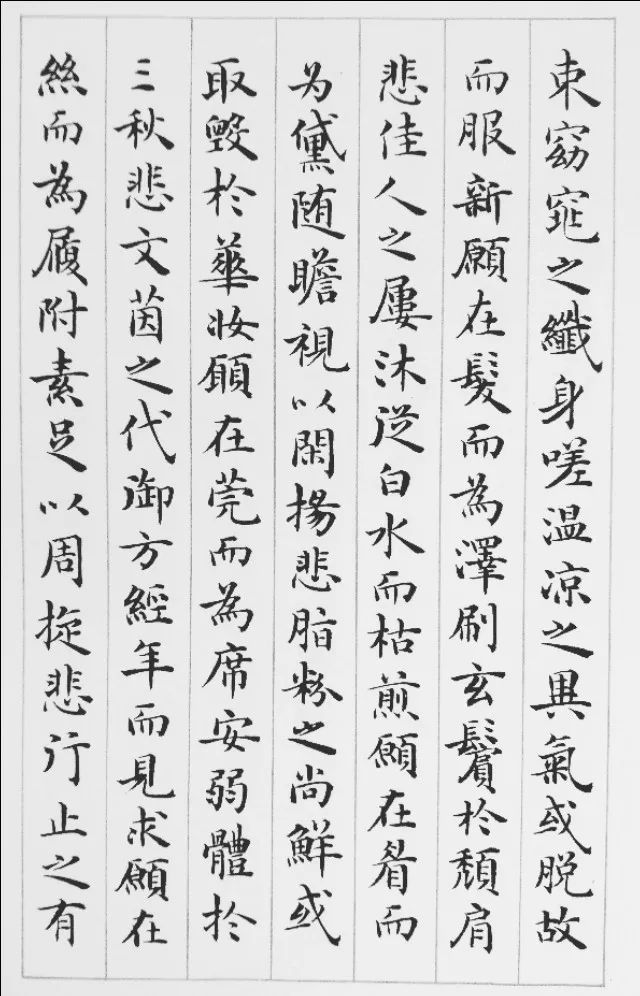 束窈窕之纖身嗟温凉之異氣或脱故
而服新願在髮而為澤刷玄鬢於頹肩
悲佳人之屢沐從白水而枯煎願在眉而
为黛随瞻視以閑揚悲脂粉之尚鮮或
取毀於華妝願在莞而為席安弱體於
三秋悲文茵之代御方經年而見求願在
絲而為履附素足以周旋悲行止之有